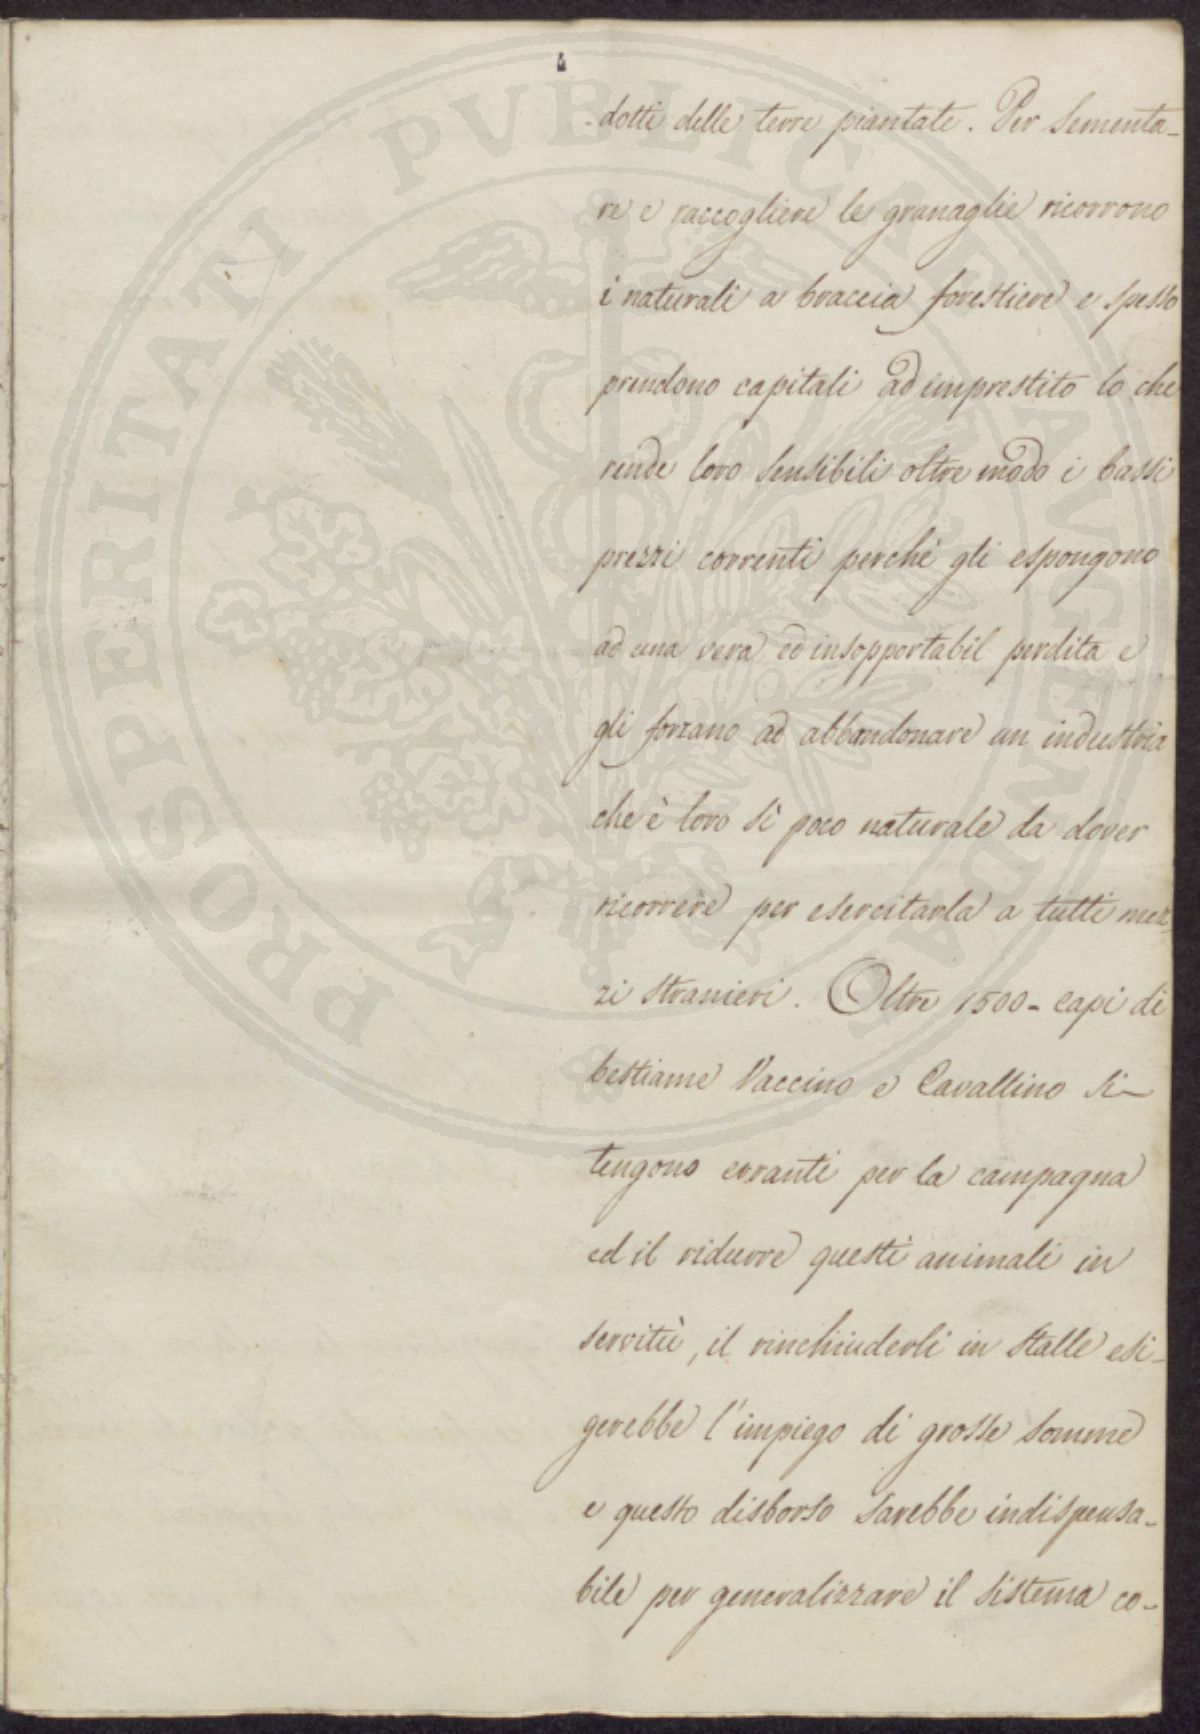 dotti delle terre piantate. Per Sementa-
re e raccogliere le granaglie ricorrono
i naturali a braccia forestiere e spesso
prendono capitali ad imprestito lo che
rende loro sensibili oltre modo i bassi
prezzi correnti perchè gli espongono
ad una vera ed insopportabil perdita e
gli forzano ad abbandonare un industria
che è loro sì poco naturale da dover
ricorrere per esercitarla a tutti mez
zi stranieri. Oltre 1500- capi di
bestiame Vaccino e Cavallino si
tengono erranti per la campagna
ed il ridurre questi animali in
servitù, il rinchiuderli in stalle esi-
gerebbe l'impiego di grosse somme
e questo disborso sarebbe indispensa-
bile per generalizzare il sistema co-
PROSPERITATI PVBLICAE AVGENDAE